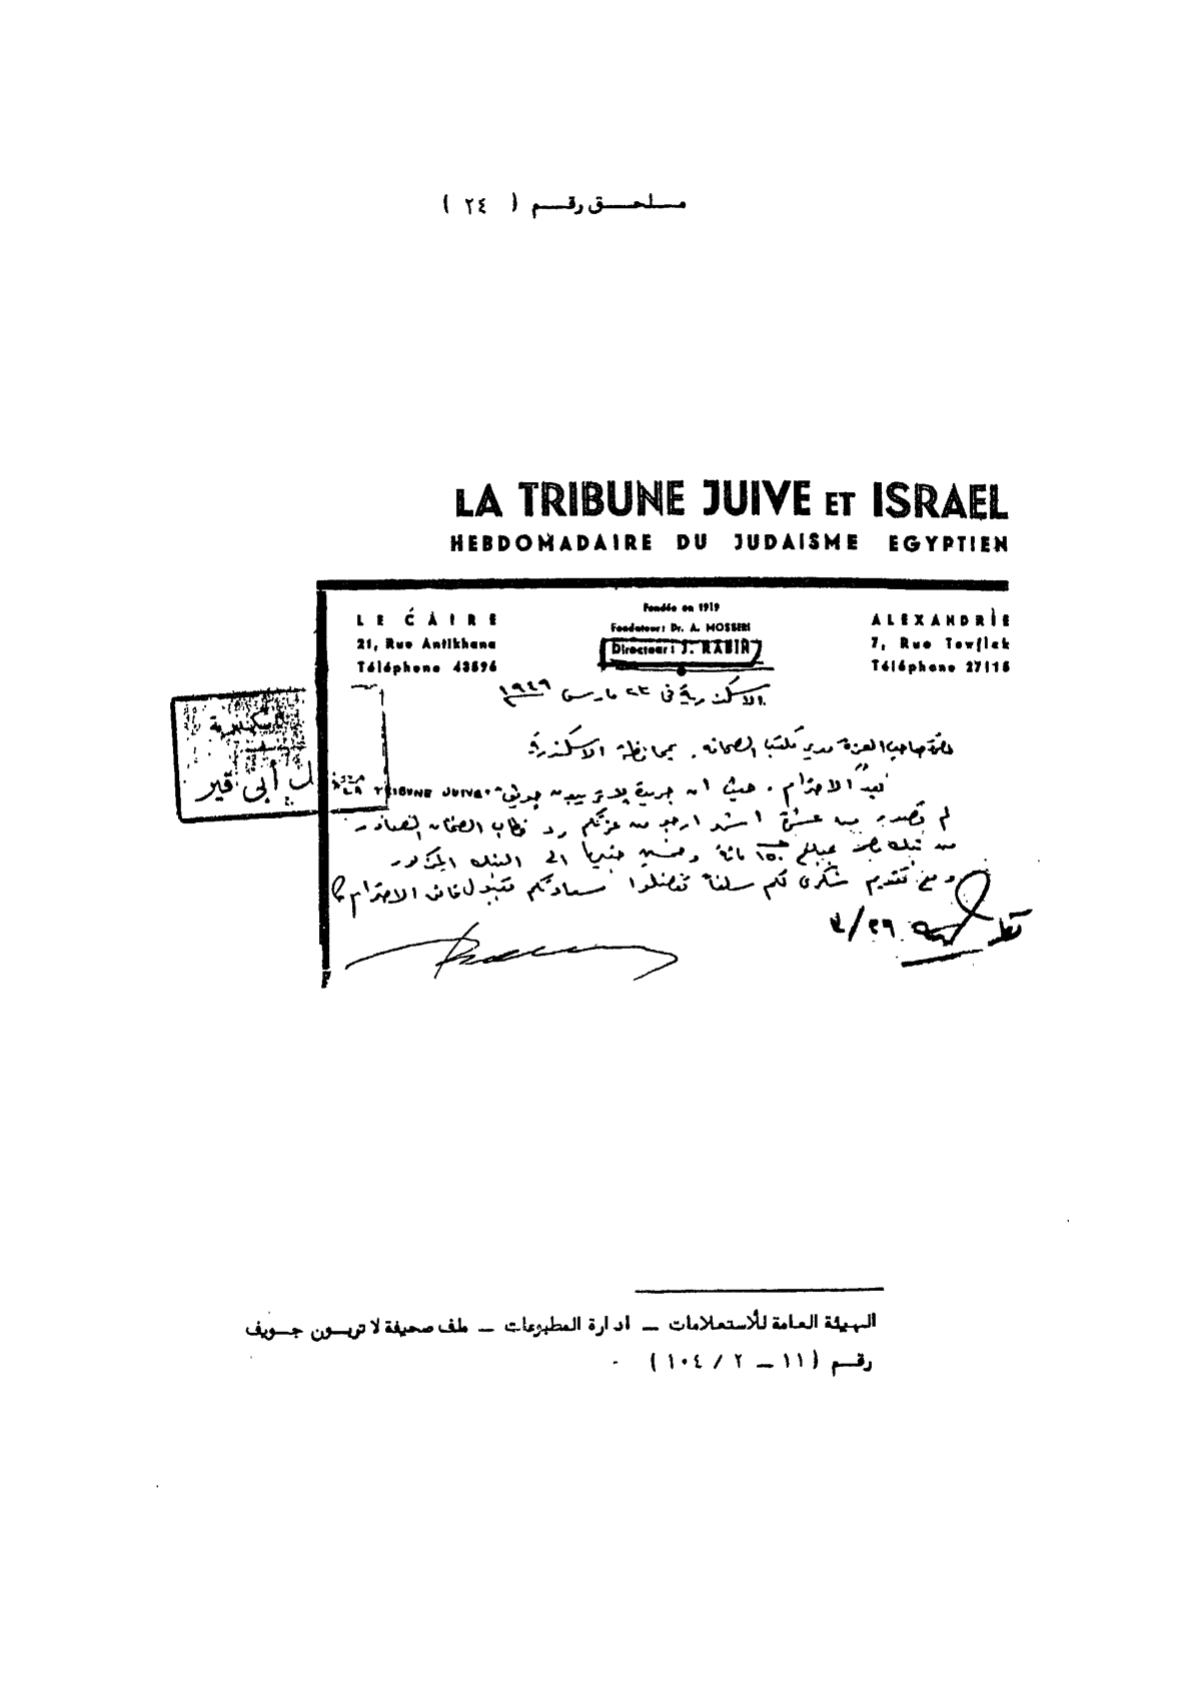 ملحق رقم ( ٢٤ )
LA TRIBUNE JUIVE ET ISRAEL
HEBDOMADAIRE DU JUDAISME EGYPTIEN
LE CAIRE
21, Rue Antikhana
Téléphone 43596
Fondée en 1919
Fondateur: Dr. A. MOSSERI
Directeur: J. RABIN
ALEXANDRIE
7, Rue Tewfick
Téléphone 27115
الاسكندرية فى ٢٣ مارس ١٩٤٩
أبى قير
حضرة صاحب العزة مدير مكتب الصحافة بمحافظة الاسكندرية
بعد الاحترام . حيث ان جريدة لاتريبون جويف "LA TRIBUNE JUIVE"
لم تصدر من عشرة اشهر ارجو من عزتكم رد خطاب الضمان الصادر
من بنك مصر بمبلغ ١٥٠ مائة وخمسين جنيها الى البنك المذكور
ومع تقديم شكرى لكم سلفا تفضلوا سعادتكم بقبول فائق الاحترام
٣/٢٦
الهيئة العامة للأستعلامات – ادارة المطبوعات – ملف صحيفة لا تريسون جويف
رقم (١١ – ٢ / ١٠٤) .